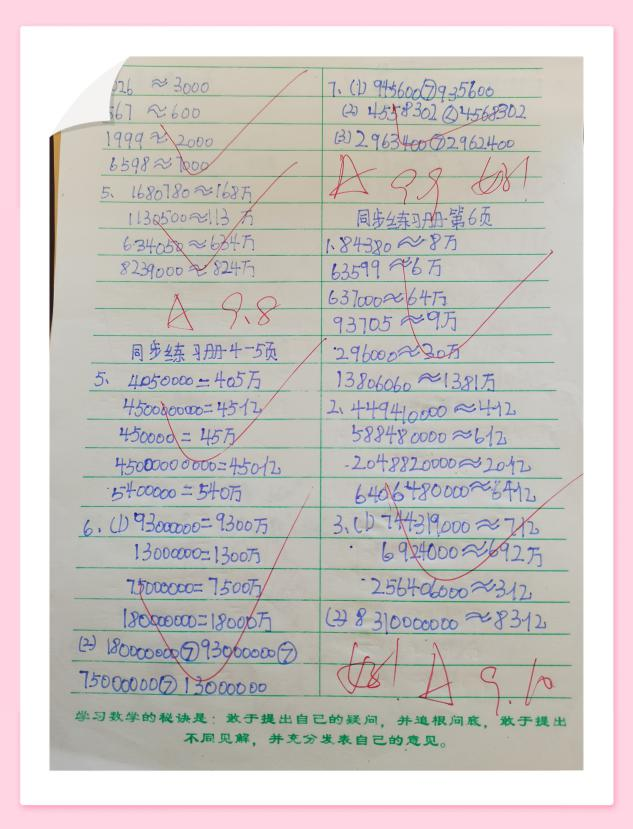 026 ≈ 3000
567 ≈ 600
1999 ≈ 2000
6598 ≈ 7000
5、1680780≈168万
1130500≈113万
634050≈634万
8239000≈824万
A 9.8
同步练习册·4-5页
5、4050000=405万
4500000000=45亿
450000=45万
45000000000=450亿
5400000=540万
6、(1)93000000=9300万
13000000=1300万
75000000=7500万
180000000=18000万
(2)180000000>93000000>
75000000>13000000
7、(1)945600>935600
(2)4558302<4568302
(3)2963400>2962400
A 9.9
同步练习册·第6页
1、84380≈8万
63599≈6万
637000≈64万
93705≈9万
296000≈30万
13806060≈1381万
2、449410000≈4亿
588480000≈6亿
2048820000≈20亿
6406480000≈64亿
3、(1)744319000≈7亿
6924000≈692万
256406000≈3亿
(2)8310000000≈83亿
A 9.10
学习数学的秘诀是：敢于提出自己的疑问，并追根问底，敢于提出
不同见解，并充分发表自己的意见。